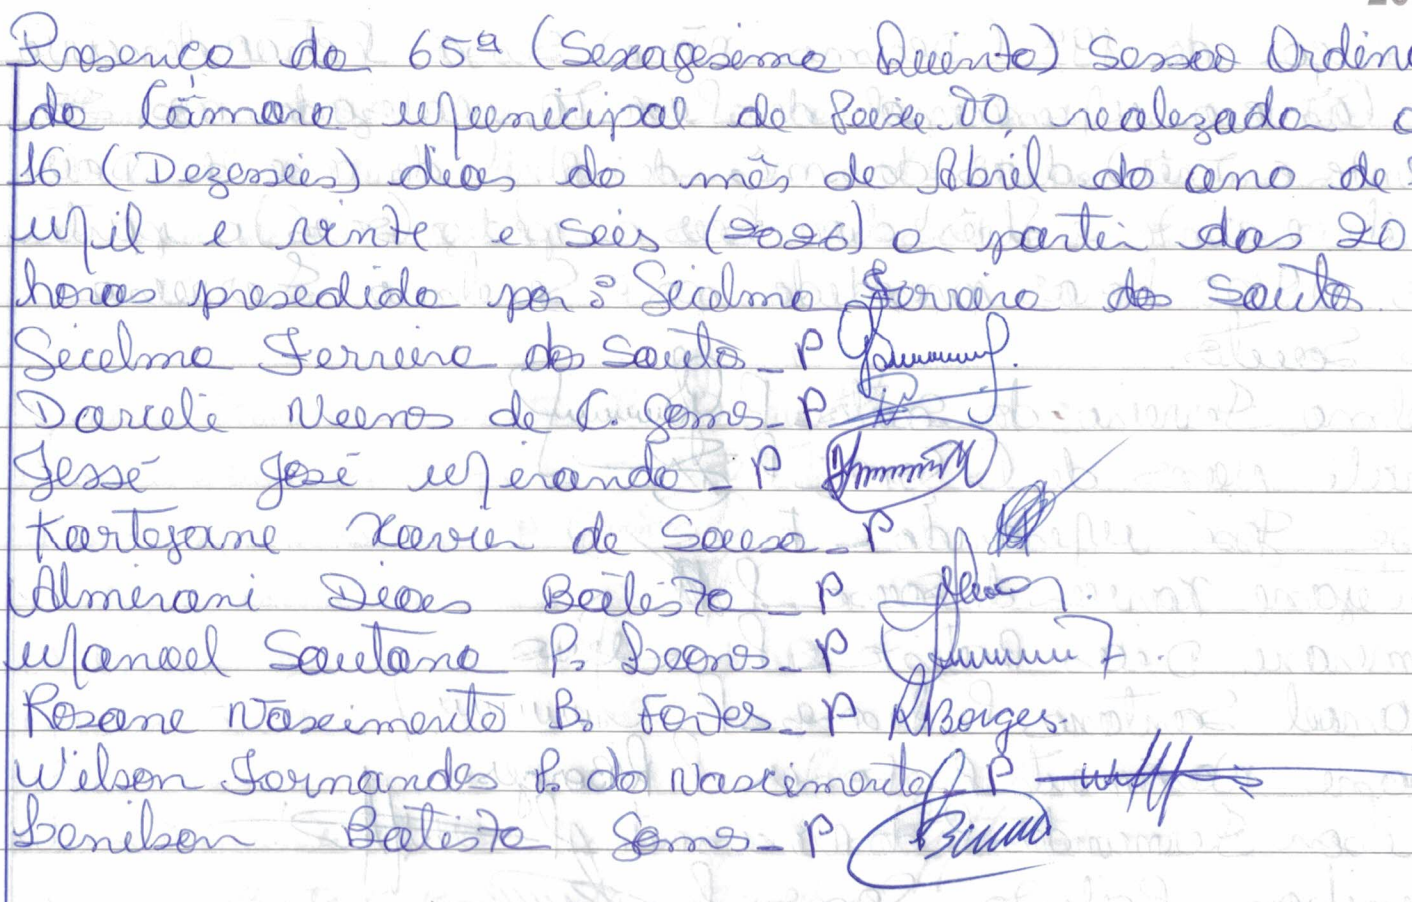 Presença da 65ª (Sexagésima Quinta) Sessão Ordiná
da Câmara Municipal de Peixe-TO, realizada a
16 (Dezesseis) dias do mês de Abril do ano de
Mil e vinte e seis (2026) a partir das 20
horas presedida por: Sicelma Ferreira dos Santos
Sicelma Ferreira dos Santos - P
Darcele Neenos de C. Gomes - P
Jessé José Miranda - P
Kartejane Xavier de Sousa - P
Almirani Dias Batista - P
Manoel Santana P. Soares - P
Rosane Nascimento B. Fortes - P RBorges
Wilson Fernandes P. do Nascimento - P
Lenilson Batista Gomes - P